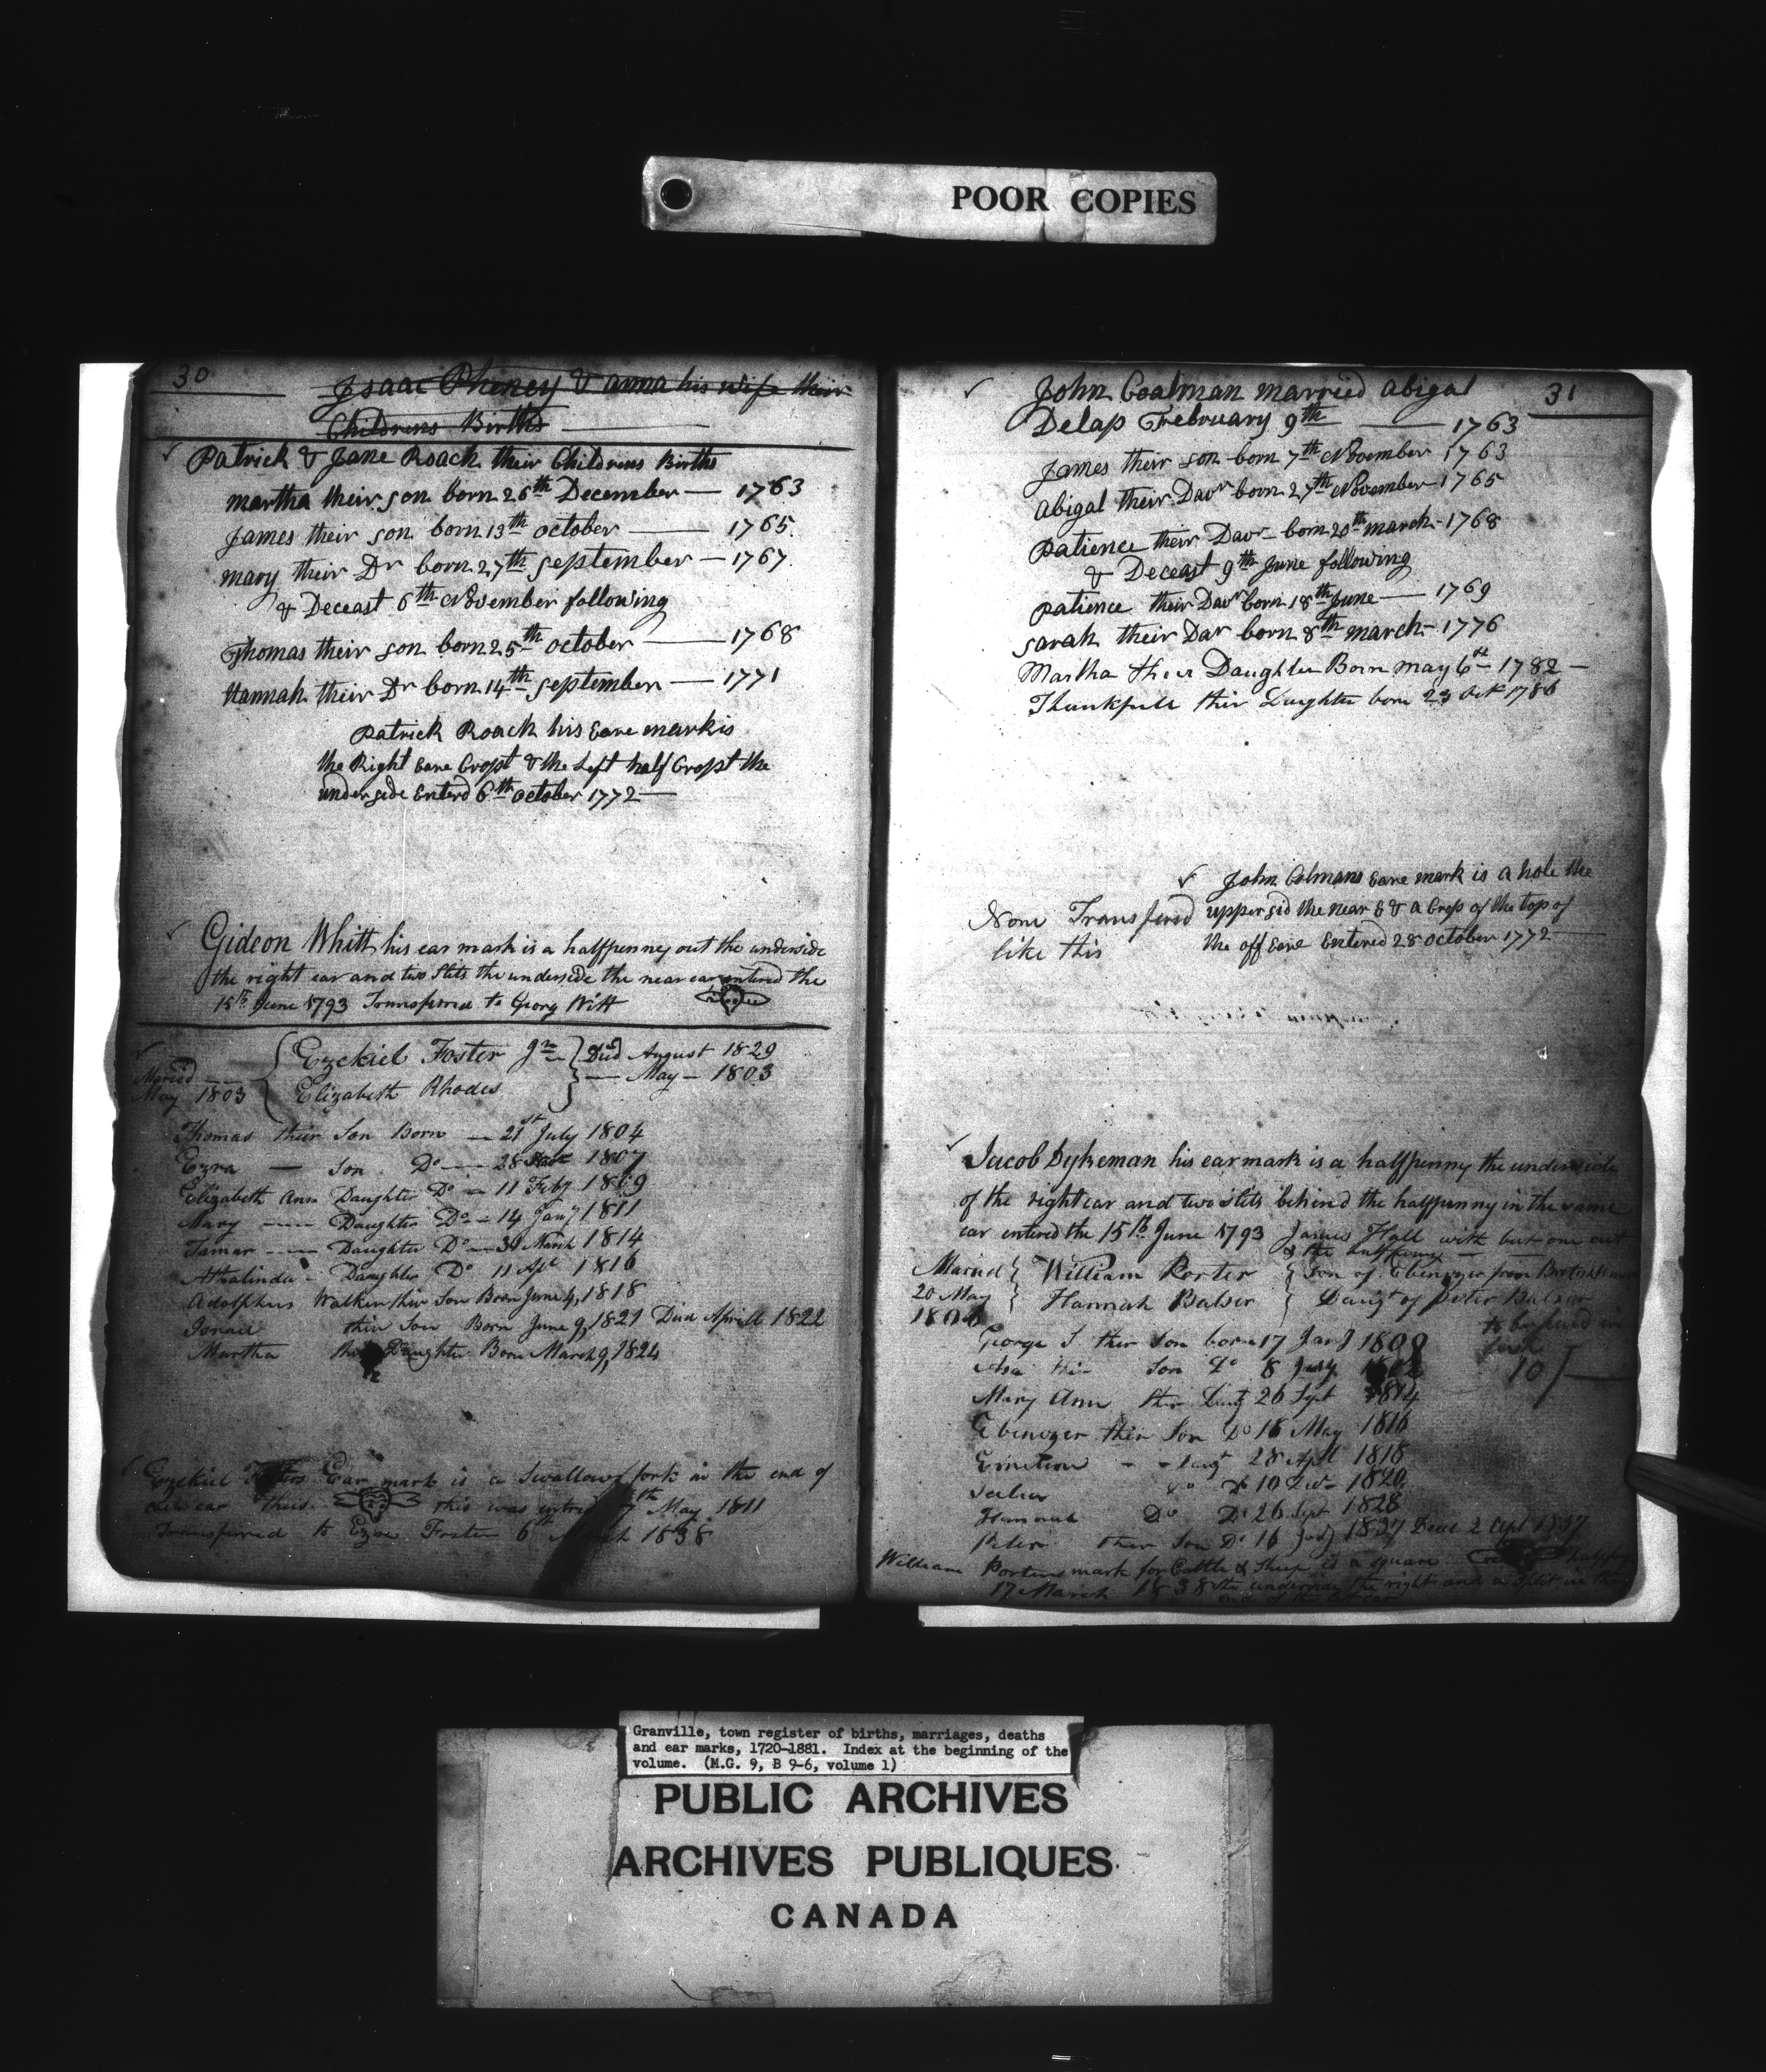 POOR COPIES
30
Isaac Phiney & anna his wife their
Childrens Births
Patrick & Jane Roach their Childrens Births
martha their son born 26th December — 1763
James their son born 13th october — 1765
mary their Dr born 27th september — 1767
& Deceast 6th November following
Thomas their son born 25th october — 1768
Hannah their Dr born 14th september — 1771
Patrick Roach his Eare mark is
the Right Eare Cropt & the Left half Cropt the
under side Enterd 6th october 1772
Gideon Whitt his ear mark is a halfpenney out the underside
the right ear and two slits the underside the near ear entered the
15th June 1793 Transferred to Georg Witt
Maried
May 1803
Ezekiel Foster Jnr Died August 1829
Elizabeth Rhodes — May — 1803
Thomas their Son Born — 21st July 1804
Ezra — Son Do — 28 1807
Elizabeth Ann Daughter Do — 11 Feby 1809
Mary — Daughter Do — 14 Jany 1811
Tamar — Daughter Do — 30 March 1814
Athalinda — Daughter Do 11 Apl 1816
Adolphus Walker thir Son Born June 4, 1818
Israel thir Son Born June 9, 1821 Died Aprill 1822
Martha Daughter Born March 9, 1824
Ezekiel Fosters Ear mark is a Swallows fork in the end of
ear thus this was entrd 7th May 1811
Transferred to Ezra Foster 6th March 1838
31
John Coalman married abigal
Delap February 9th — 1763
James their son born 7th November 1763
Abigal their Davr born 27th November 1765
patience their Davr born 20th march 1768
& Deceast 9th June following
patience their Davr born 18th June — 1769
sarah their Dar born 8th march 1776
Martha their Daughter Born may 6th 1782 —
Thankfull thir Daughter born 23 Oct 1786
John Colmans eare mark is a hole the
upper sid the near E & a Crop of the top of
the off Eare Entered 28 october 1772
None Transfered
like this
Jacob Dykeman his ear mark is a halfpenny the underside
of the right ear and two slits behind the halfpenny in the same
ear entered the 15th June 1793 James Hall with but one cut
& the halfpenny
Maried
20 May
William Porter Son of Ebenezer from
Hannah Balser Daugt of Peter Balser
George S ther Son born 17 Jany 1809
Asa thir Son Do 8
Mary Ann thir Daug 26 Sept 1814
Ebenezer thir Son Do 18 May 1816
Daugt 28 Apl 1818
Do Do 10 1820
Hannah Do Do 26 Sept 1828
Peter ther Son Do 16 1837 Died 2 Apl 1837
10/
William Porters mark for Cattle & Sheep is a square halfpeny
17 March 1838 the underside the right and a split in the
end of the left ear
Granville, town register of births, marriages, deaths
and ear marks, 1720-1881. Index at the beginning of the
volume. (M.G. 9, B 9-6, volume 1)
PUBLIC ARCHIVES
ARCHIVES PUBLIQUES
CANADA